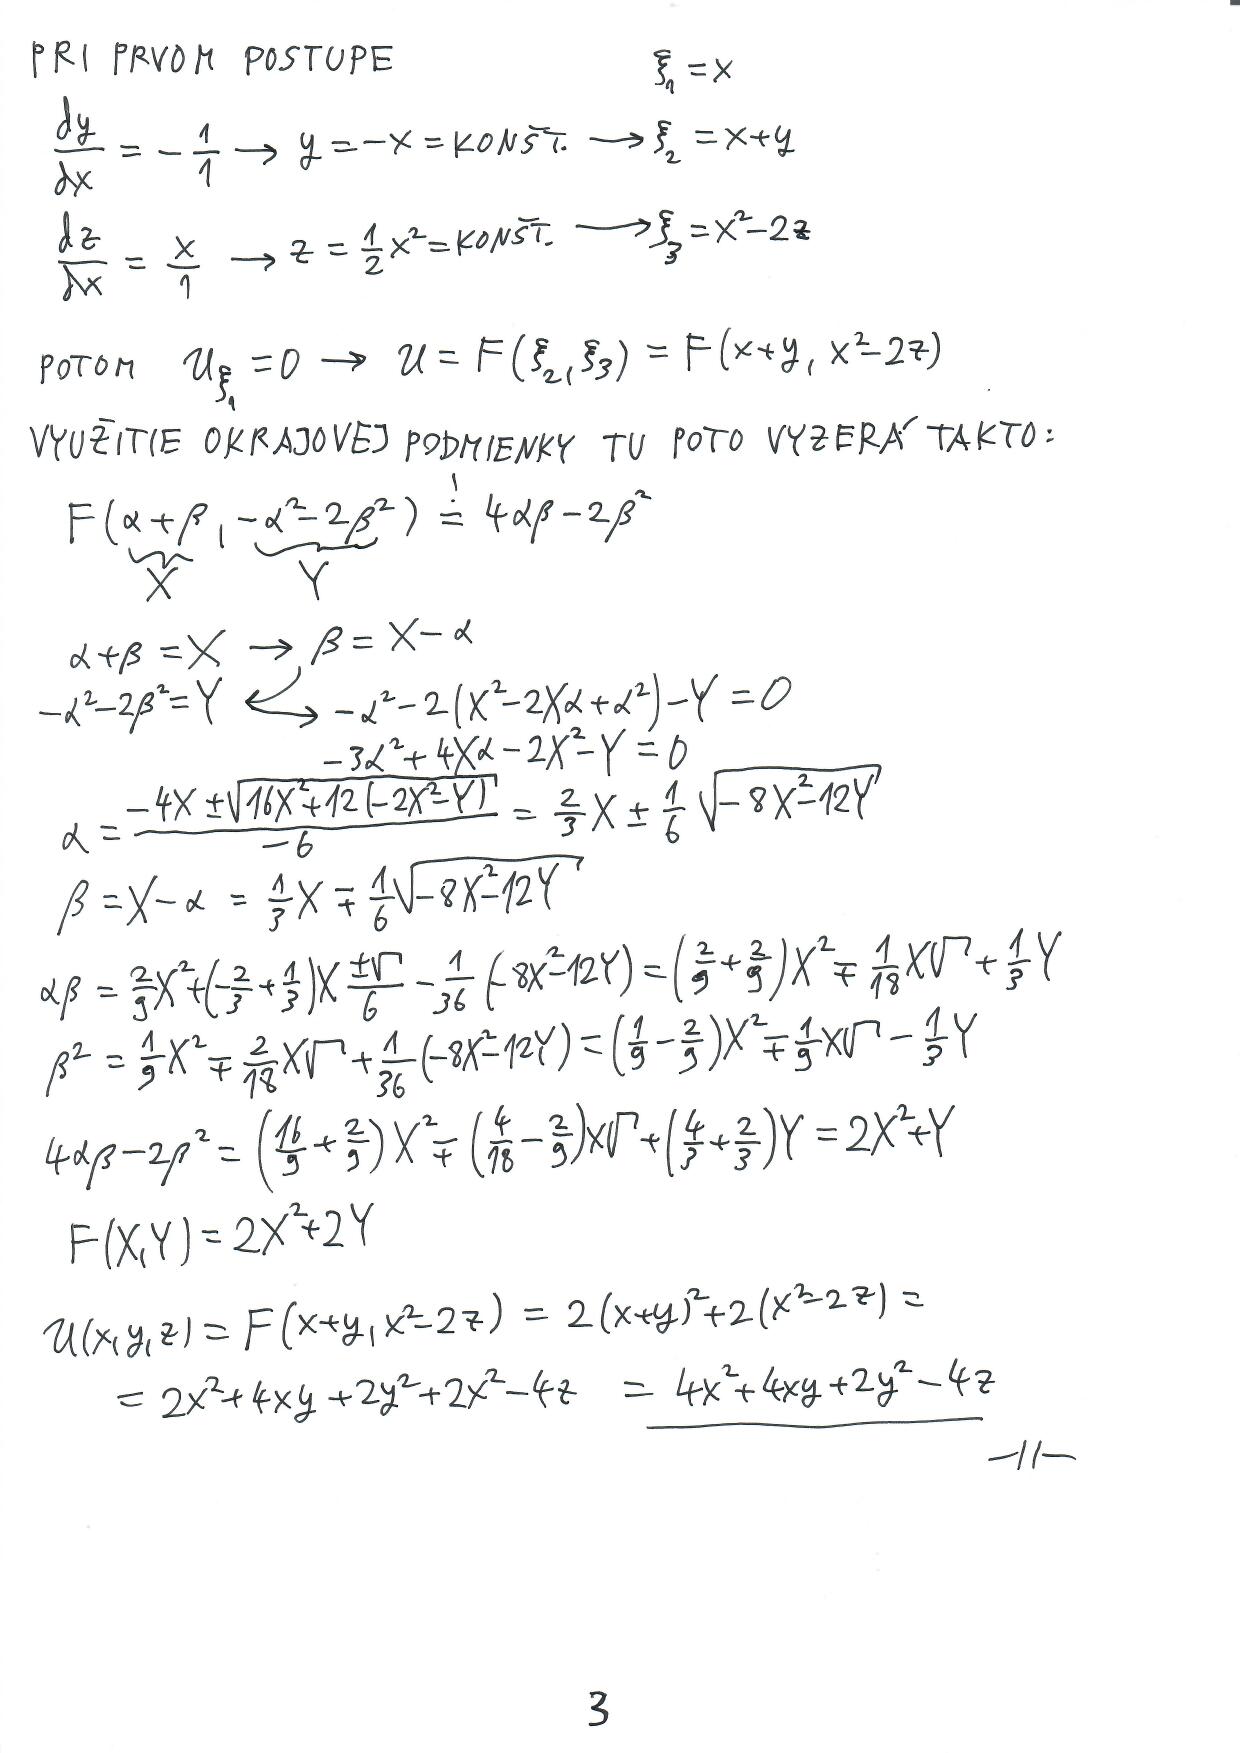 PRI PRVOM POSTUPE ξ₁ = x
dy/dx = -1/1 → y = -x = KONŠT. → ξ₂ = x+y
dz/dx = x/1 → z = 1/2 x² = KONŠT. → ξ₃ = x²-2z
POTOM u_ξ₁ = 0 → u = F(ξ₂, ξ₃) = F(x+y, x²-2z)
VYUŽITIE OKRAJOVEJ PODMIENKY TU POTO VYZERÁ TAKTO:
F(α+β, -α²-2β²) =! 4αβ-2β²
X Y
α+β = X → β = X-α
-α²-2β² = Y ↔ -α²-2(X²-2Xα+α²)-Y = 0
-3α²+4Xα-2X²-Y = 0
α = (-4X ± √(16X²+12(-2X²-Y)))/-6 = 2/3 X ± 1/6 √(-8X²-12Y)
β = X-α = 1/3 X ∓ 1/6 √(-8X²-12Y)
αβ = 2/9 X² + (-2/3 + 1/3)X ±√/6 - 1/36 (-8X²-12Y) = (2/9 + 2/9)X² ∓ 1/18 X√ + 1/3 Y
β² = 1/9 X² ∓ 2/18 X√ + 1/36 (-8X²-12Y) = (1/9 - 2/9)X² ∓ 1/9 X√ - 1/3 Y
4αβ-2β² = (16/9 + 2/9)X² ∓ (4/18 - 2/9)X√ + (4/3 + 2/3)Y = 2X²+Y
F(X,Y) = 2X²+2Y
u(x,y,z) = F(x+y, x²-2z) = 2(x+y)²+2(x²-2z) =
= 2x²+4xy+2y²+2x²-4z = 4x²+4xy+2y²-4z
-//-
3